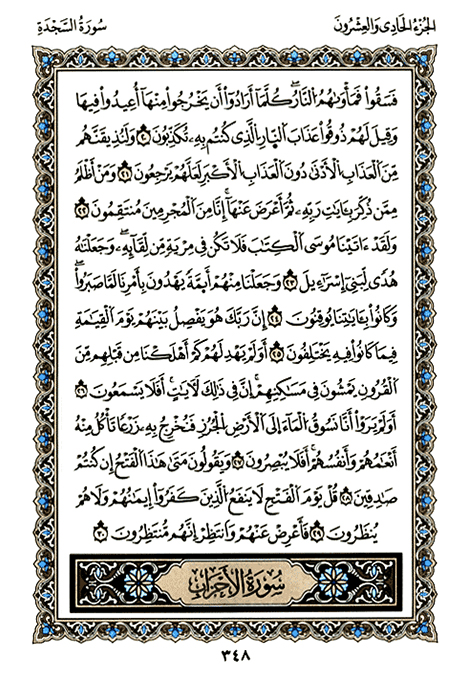 الجُزءُ الحَادِى وَالعِشْرُونَ
سُورَةُ السَّجْدَةِ
فَسَقُوا۟ فَمَأْوَىٰهُمُ النَّارُ ۖ كُلَّمَآ أَرَادُوٓا۟ أَن يَخْرُجُوا۟ مِنْهَآ أُعِيدُوا۟ فِيهَا
وَقِيلَ لَهُمْ ذُوقُوا۟ عَذَابَ النَّارِ الَّذِى كُنتُم بِهِۦ تُكَذِّبُونَ ٢٠ وَلَنُذِيقَنَّهُم
مِّنَ الْعَذَابِ الْأَدْنَىٰ دُونَ الْعَذَابِ الْأَكْبَرِ لَعَلَّهُمْ يَرْجِعُونَ ٢١ وَمَنْ أَظْلَمُ
مِمَّن ذُكِّرَ بِـَٔايَٰتِ رَبِّهِۦ ثُمَّ أَعْرَضَ عَنْهَآ ۚ إِنَّا مِنَ الْمُجْرِمِينَ مُنتَقِمُونَ ٢٢
وَلَقَدْ ءَاتَيْنَا مُوسَى الْكِتَٰبَ فَلَا تَكُن فِى مِرْيَةٍ مِّن لِّقَآئِهِۦ ۖ وَجَعَلْنَٰهُ
هُدًى لِّبَنِىٓ إِسْرَٰٓءِيلَ ٢٣ وَجَعَلْنَا مِنْهُمْ أَئِمَّةً يَهْدُونَ بِأَمْرِنَا لَمَّا صَبَرُوا۟ ۖ
وَكَانُوا۟ بِـَٔايَٰتِنَا يُوقِنُونَ ٢٤ إِنَّ رَبَّكَ هُوَ يَفْصِلُ بَيْنَهُمْ يَوْمَ الْقِيَٰمَةِ
فِيمَا كَانُوا۟ فِيهِ يَخْتَلِفُونَ ٢٥ أَوَلَمْ يَهْدِ لَهُمْ كَمْ أَهْلَكْنَا مِن قَبْلِهِم مِّنَ
الْقُرُونِ يَمْشُونَ فِى مَسَٰكِنِهِمْ ۚ إِنَّ فِى ذَٰلِكَ لَـَٔايَٰتٍ ۖ أَفَلَا يَسْمَعُونَ ٢٦
أَوَلَمْ يَرَوْا۟ أَنَّا نَسُوقُ الْمَآءَ إِلَى الْأَرْضِ الْجُرُزِ فَنُخْرِجُ بِهِۦ زَرْعًا تَأْكُلُ مِنْهُ
أَنْعَٰمُهُمْ وَأَنفُسُهُمْ ۖ أَفَلَا يُبْصِرُونَ ٢٧ وَيَقُولُونَ مَتَىٰ هَٰذَا الْفَتْحُ إِن كُنتُمْ
صَٰدِقِينَ ٢٨ قُلْ يَوْمَ الْفَتْحِ لَا يَنفَعُ الَّذِينَ كَفَرُوٓا۟ إِيمَٰنُهُمْ وَلَا هُمْ
يُنظَرُونَ ٢٩ فَأَعْرِضْ عَنْهُمْ وَانتَظِرْ إِنَّهُم مُّنتَظِرُونَ ٣٠
سُورَةُ الْأَحْزَابِ
٣٤٨